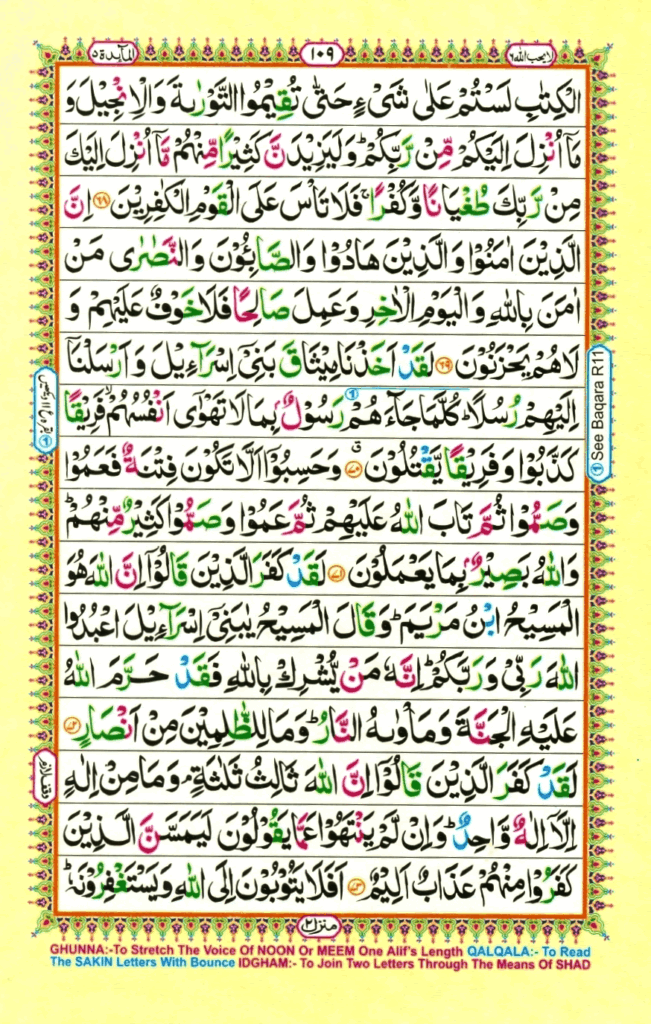 لا يحب الله ٦
١٠٩
المآئدة ٥
الْكِتٰبِ لَسْتُمْ عَلٰى شَىْءٍ حَتّٰى تُقِيْمُوا التَّوْرٰىةَ وَالْاِنْجِيْلَ وَ
مَاۤ اُنْزِلَ اِلَيْكُمْ مِّنْ رَّبِّكُمْؕ وَلَيَزِيْدَنَّ كَثِيْرًا مِّنْهُمْ مَّاۤ اُنْزِلَ اِلَيْكَ
مِنْ رَّبِّكَ طُغْيَانًا وَّكُفْرًاۚ فَلَا تَاْسَ عَلَى الْقَوْمِ الْكٰفِرِيْنَ ۝۶۸ اِنَّ
الَّذِيْنَ اٰمَنُوْا وَالَّذِيْنَ هَادُوْا وَالصَّابِئُوْنَ وَالنَّصٰرٰى مَنْ
اٰمَنَ بِاللّٰهِ وَالْيَوْمِ الْاٰخِرِ وَعَمِلَ صَالِحًا فَلَا خَوْفٌ عَلَيْهِمْ وَ
لَا هُمْ يَحْزَنُوْنَ ۝۶۹ لَقَدْ اَخَذْنَا مِيْثَاقَ بَنِىْۤ اِسْرَآءِيْلَ وَاَرْسَلْنَاۤ
اِلَيْهِمْ رُسُلًاؕ كُلَّمَا جَآءَهُمْ رَسُوْلٌۢ بِمَا لَا تَهْوٰٓى اَنْفُسُهُمْۙ فَرِيْقًا
كَذَّبُوْا وَفَرِيْقًا يَّقْتُلُوْنَ ۝۷۰ۗ وَحَسِبُوْۤا اَلَّا تَكُوْنَ فِتْنَةٌ فَعَمُوْا
وَصَمُّوْا ثُمَّ تَابَ اللّٰهُ عَلَيْهِمْ ثُمَّ عَمُوْا وَصَمُّوْا كَثِيْرٌ مِّنْهُمْؕ
وَاللّٰهُ بَصِيْرٌۢ بِمَا يَعْمَلُوْنَ ۝۷۱ لَقَدْ كَفَرَ الَّذِيْنَ قَالُوْۤا اِنَّ اللّٰهَ هُوَ
الْمَسِيْحُ ابْنُ مَرْيَمَؕ وَقَالَ الْمَسِيْحُ يٰبَنِىْۤ اِسْرَآءِيْلَ اعْبُدُوا
اللّٰهَ رَبِّىْ وَرَبَّكُمْؕ اِنَّهٗ مَنْ يُّشْرِكْ بِاللّٰهِ فَقَدْ حَرَّمَ اللّٰهُ
عَلَيْهِ الْجَنَّةَ وَمَاْوٰىهُ النَّارُؕ وَمَا لِلظّٰلِمِيْنَ مِنْ اَنْصَارٍ ۝۷۲
لَقَدْ كَفَرَ الَّذِيْنَ قَالُوْۤا اِنَّ اللّٰهَ ثَالِثُ ثَلٰثَةٍۘ وَمَا مِنْ اِلٰهٍ
اِلَّاۤ اِلٰهٌ وَّاحِدٌؕ وَاِنْ لَّمْ يَنْتَهُوْا عَمَّا يَقُوْلُوْنَ لَيَمَسَّنَّ الَّذِيْنَ
كَفَرُوْا مِنْهُمْ عَذَابٌ اَلِيْمٌ ۝۷۳ اَفَلَا يَتُوْبُوْنَ اِلَى اللّٰهِ وَيَسْتَغْفِرُوْنَهٗؕ
See Baqara R11
منزل ٢
GHUNNA:-To Stretch The Voice Of NOON Or MEEM One Alif's Length QALQALA:- To Read
The SAKIN Letters With Bounce IDGHAM:- To Join Two Letters Through The Means Of SHAD